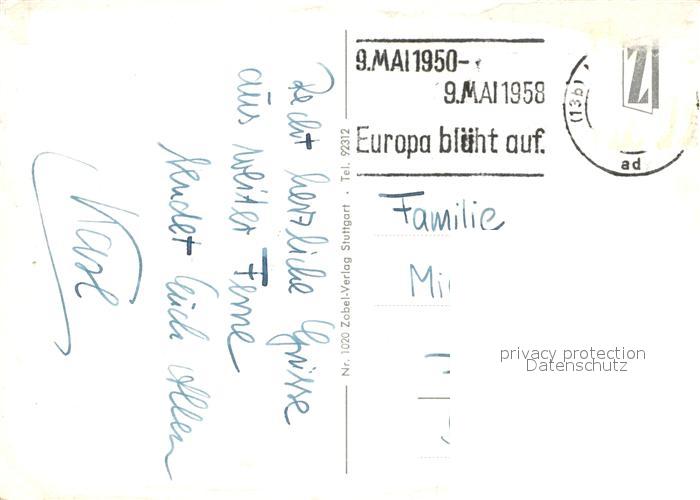 9. MAI 1950-
9. MAI 1958
Europa blüht auf.
(13b)
ad
Z
Familie
Mi
privacy protection
Datenschutz
Nr. 1020 Zobel-Verlag Stuttgart · Tel. 92312
Recht herzliche Grüsse
aus weiter Ferne
sendet Euch Allen
Karl